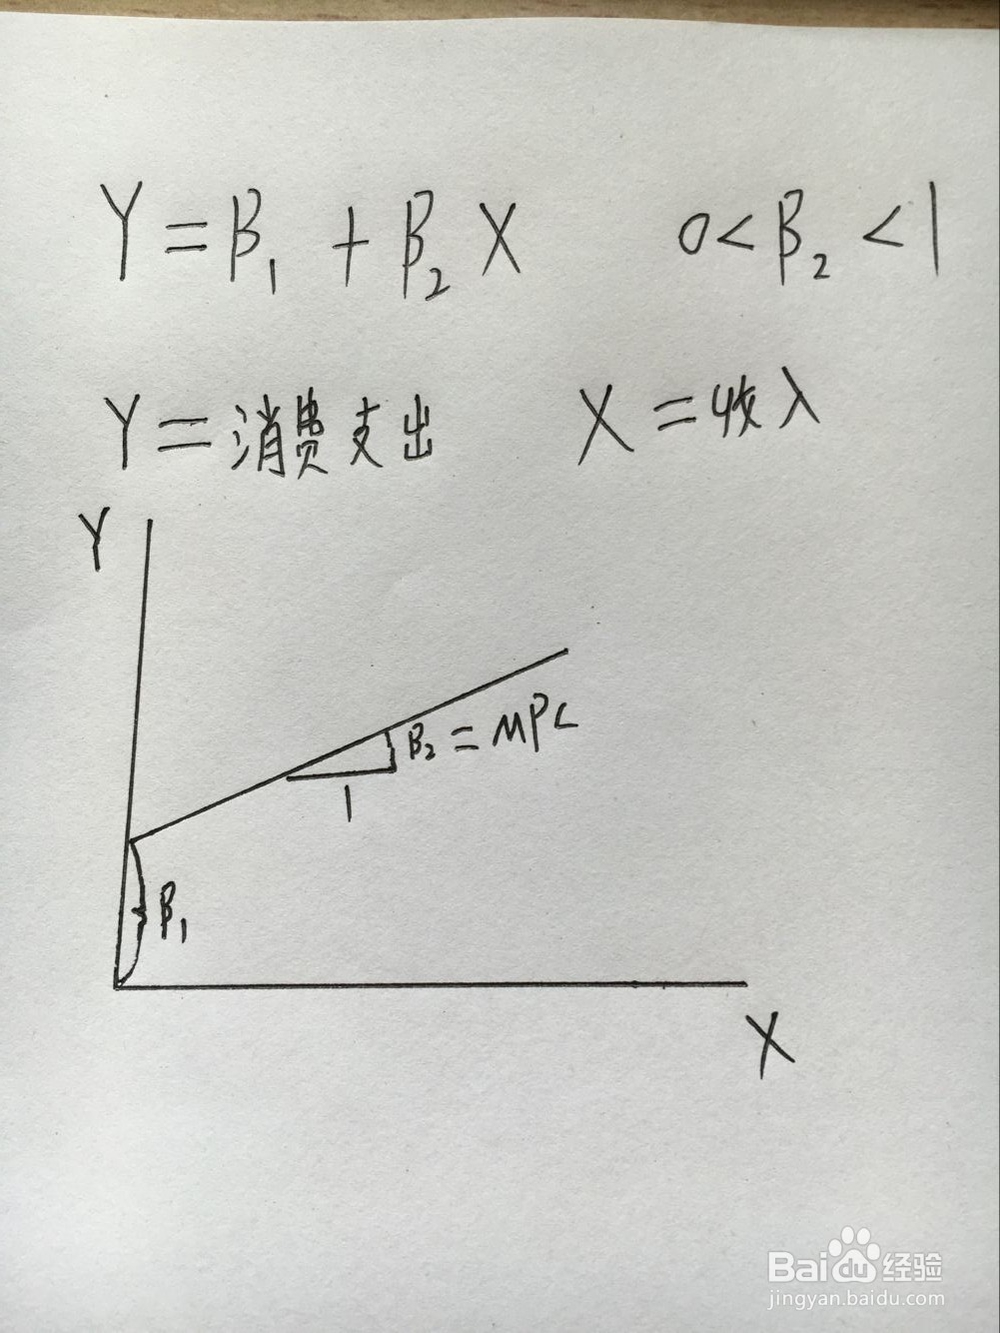 Y = β₁ + β₂ X 0 < β₂ < 1
Y = 消费支出 X = 收入
Y
β₂ = MPC
1
β₁
X
Baidu 经验
jingyan.baidu.com